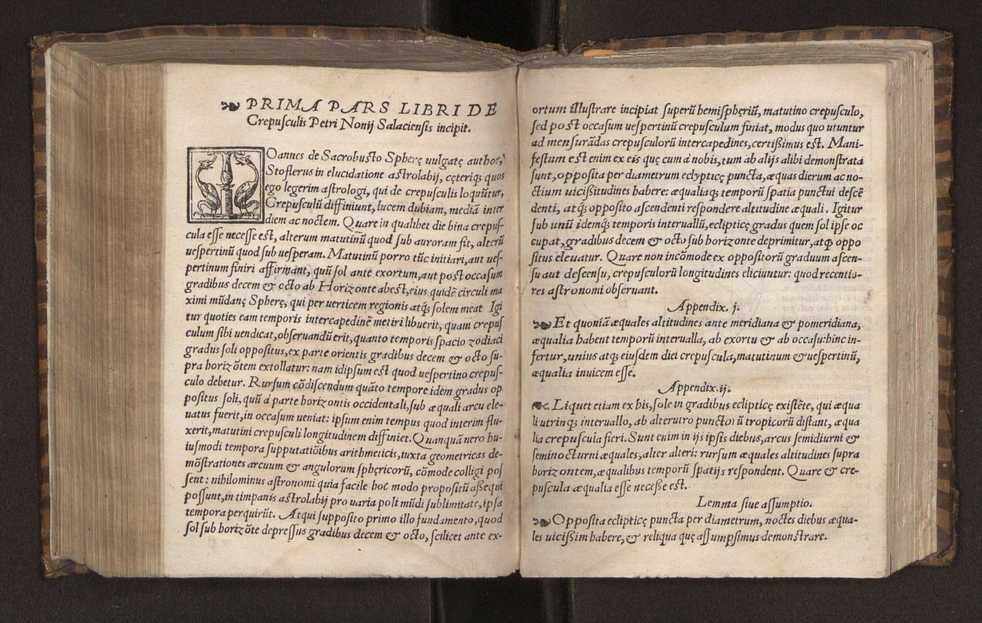 PRIMA PARS LIBRI DE
Crepusculis Petri Nonij Salaciensis incipit.
IOannes de Sacrobusto Spherę uulgatę author,
Stoflerus in elucidatione astrolabij, cęteriqꝫ quos
ego legerim astrologi, qui de crepusculis loquũtur,
Crepusculũ diffiniunt, lucem dubiam, mediã inter
diem ac noctem. Quare in qualibet die bina crepus-
cula esse necesse est, alterum matutinũ quod sub auroram fit, alterũ
uespertinũ quod sub uesperam. Matutinũ porro tũc initiari, aut ues-
pertinum finiri affirmant, quũ sol ante exortum, aut post occasum
gradibus decem & octo ab Horizonte abest, eius quidẽ circuli ma
ximi mũdanę Spherę, qui per verticem regionis atqꝫ solem meat. Igi
tur quoties eam temporis intercapedinẽ metiri libuerit, quam crepus
culum sibi uendicat, obseruandũ erit, quanto temporis spacio zodiaci
gradus soli oppositus, ex parte orientis gradibus decem & octo su-
pra horizõtem extollatur: nam id ipsum est quod uespertino crepus-
culo debetur. Rursum cõdiscendum quãto tempore idem gradus op
positus soli, quũ á parte horizontis occidentali, sub æquali arcu ele-
uatus fuerit, in occasum ueniat: ipsum enim tempus quod interim flu-
xerit, matutini crepusculi longitudinem diffiniet. Quanquã uero hu-
iusmodi tempora supputatiõibus arithmeticis, iuxta geometricas de-
mõstrationes arcuum & angulorum sphęricorũ, cõmode colligi pos
sent: nihilominus astronomi quia facile hoc modo propositũ assequi
possunt, in timpanis astrolabij pro uaria poli mũdi sublimitate, ipsa
tempora perquirũt. Atqui supposito primo illo fundamento, quod
sol sub horizõte depressus gradibus decem & octo, scilicet ante ex-
ortum illustrare incipiat superũ hemispherιũ, matutino crepusculo,
sed post occasum uespertinũ crepusculum finiat, modus quo utuntur
ad mensurãdas crepusculorũ intercapedines, certissimus est. Mani-
festum est enim ex eis quę cum a nobis, tum ab alijs alibi demonstrata
sunt, opposita per diametrum eclypticę puncta, æquas dierum ac no-
ctium uicissitudines habere: æqualiaqꝫ temporũ spatia punctui descẽ
denti, atqꝫ opposito ascendenti respondere altitudine æquali. Igitur
sub unũ idemqꝫ temporis interuallũ, eclipticę gradus quem sol ipse oc
cupat, gradibus decem & octo sub horizonte deprimitur, atqꝫ oppo
situs eleuatur. Quare non incõmode ex oppositorũ graduum ascen-
su aut descensu, crepusculorũ longitudines eliciuntur: quod recentio-
res astronomi obseruant.
Appendix. j.
Et quoniã æquales altitudines ante meridiana & pomeridiana,
æqualia habent temporũ interualla, ab exortu & ab occasu: hinc in-
fertur, unius atqꝫ eiusdem diei crepuscula, matutinum & uespertinũ,
æqualia inuicem esse.
Appendix. ij.
Liquet etiam ex his, sole in gradibus eclipticę existẽte, qui æqua
li utrinqꝫ interuallo, ab alterutro punctorũ tropicorũ distant, æqua
lia crepuscula fieri. Sunt enim in ijs ipsis diebus, arcus semidiurni &
seminocturni æquales, alter alteri: rursum æquales altitudines supra
horizontem, æqualibus temporũ spatijs respondent. Quare & cre-
puscula æqualia esse necesse est.
Lemma siue assumptio.
Opposita eclipticę puncta per diametrum, noctes diebus æqua-
les uicissim habere, & reliqua quę assumpsimus demonstrare.